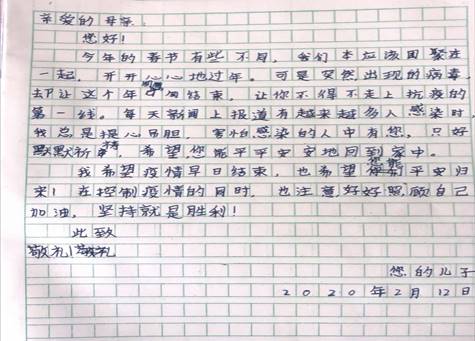 亲爱的母亲:
您好!
今年的春节有些不同,我们本应该团聚在
一起,开开心心地过年。可是突然出现的病毒
却让这个年匆匆结束,让你不得不走上抗疫的
第一线。每天新闻上报道有越来越多人感染时,
我总是提心吊胆,害怕感染的人中有您,只好
默默祈祷,希望您能平平安安地回到家中。
我希望疫情早日结束,也希望您能平安归
来!在控制疫情的同时,也注意好好照顾自己
加油,坚持就是胜利!
此致
敬礼!敬礼
您的儿子
2020年2月12日